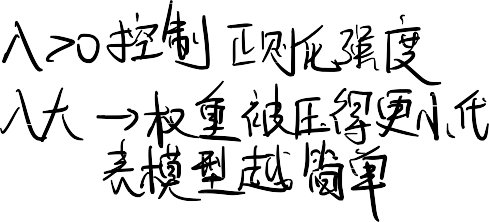 λ>0控制正则化强度
λ大→权重被压得更小,代
表模型越简单